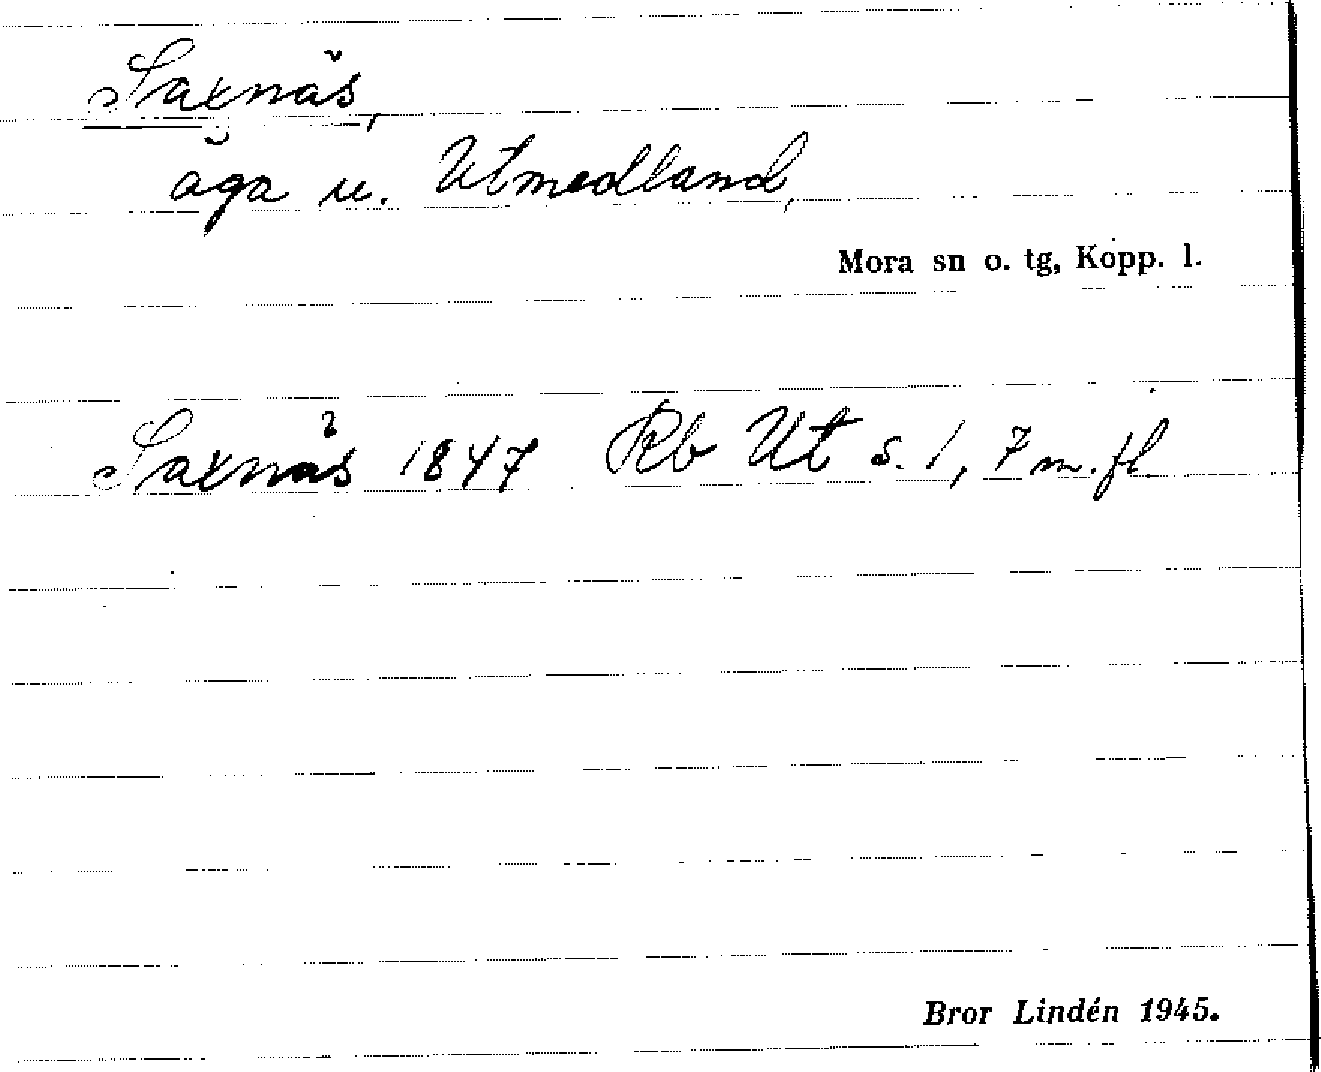 Saxnäs,
äga u. Utmedland,
Mora sn o. tg, Kopp. l.
Saxnäs 1847 Rb Ut s. 1, 7 m. fl.
Bror Lindén 1945.